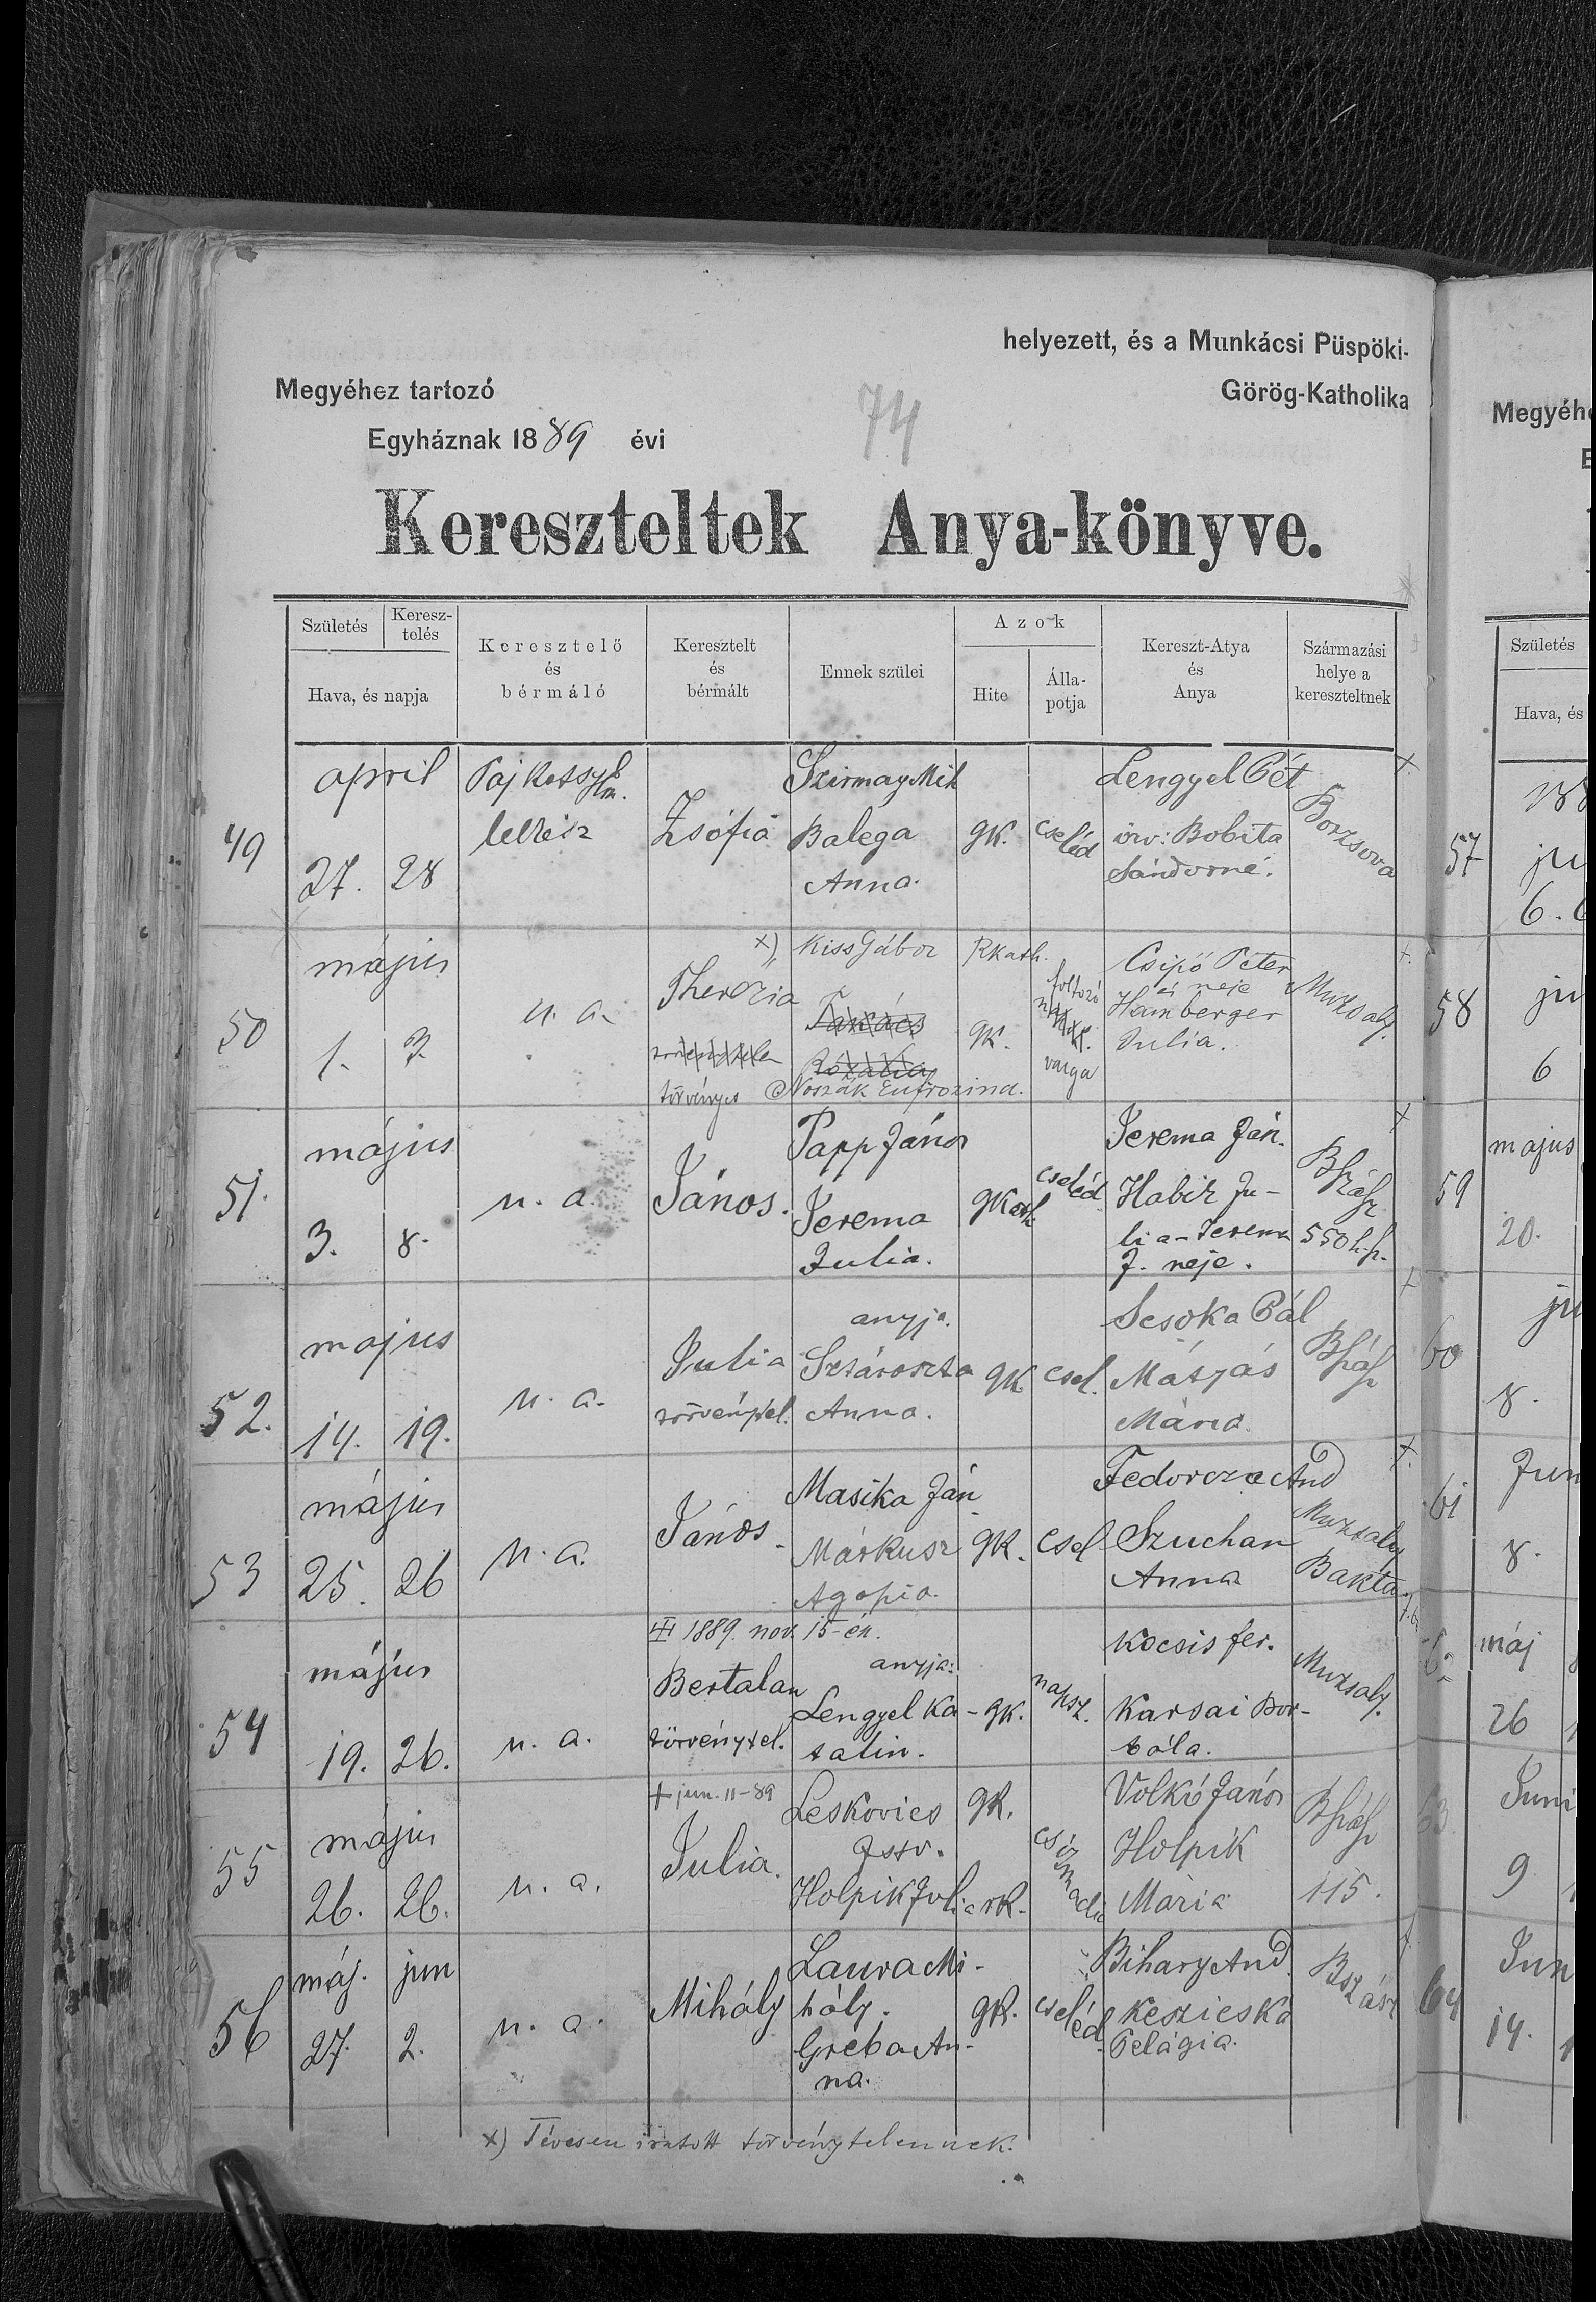 helyezett, és a Munkácsi Püspöki-
Megyéhez tartozó
Görög-Katholika
Egyháznak 1889 évi
74
Kereszteltek Anya-könyve.
Születés
Keresz-
telés
Hava, és napja
Keresztelő
és
bérmáló
Keresztelt
és
bérmált
Ennek szülei
Azok
Hite
Álla-
potja
Kereszt-Atya
és
Anya
Származási
helye a
kereszteltnek
49
april
27. 28
lelkész
Zsófia
Szirmay Mih
Balega
Anna.
gk.
cseléd
Lengyel Pét
özv: Bobita
Sándorné.
Borzsova
50
május
1. 7.
u. a.
Therézia
törvényes
x) Kiss Gábor
Takács
Rozália
Noszák Eufrozina.
Rkath.
gk.
foltozó
varga
Csipő Péter
és neje
Hamberger
Julia.
Muzsaly.
51.
május
3. 8.
u. a.
János.
Papp János
Jerema
Julia.
gkath
cseléd
Jerema Ján.
Habik Ju-
lia - Jerema
J. neje.
Bszász
550 h.sz.
52.
majus
14. 19.
u. a.
Julia
törvénytel.
anyja.
Sztároszta
Anna.
gk
csel.
Scsoka Pál
Mátyás
Mária.
Bszász
53
május
25. 26
u. a.
János.
Masika Ján
Márkusz
Agapia.
gk.
csel
Fedorcza And
Szuchan
Anna
Muzsaly
Bakta.
54
május
19. 26.
u. a.
1889. nov. 15-én.
Bertalan
törvénytel.
anyja:
Lengyel Ka-
talin.
gk.
napsz.
Kocsis fer.
Karsai Bor-
bála.
Muzsaly.
55
május
26. 26.
u. a.
+ jun. 11-89
Julia.
Leskovics
Istv.
Holpik Julia
gk.
rk.
csizmadia
Volkó János
Holpik
Mária
Bszász
115.
56
máj. jun
27. 2.
u. a.
Mihály
Laura Mi-
hály.
Greba An-
na.
gk.
cseléd.
Bihary And
Keszicska
Pelágia.
Bszász
x) Tévesen iratott törvénytelennek.
Megyéh
Születés
Hava, és
57
6.
58
6
59
majus
20.
60
8.
61
8.
62
máj
26
63
9
64
14.